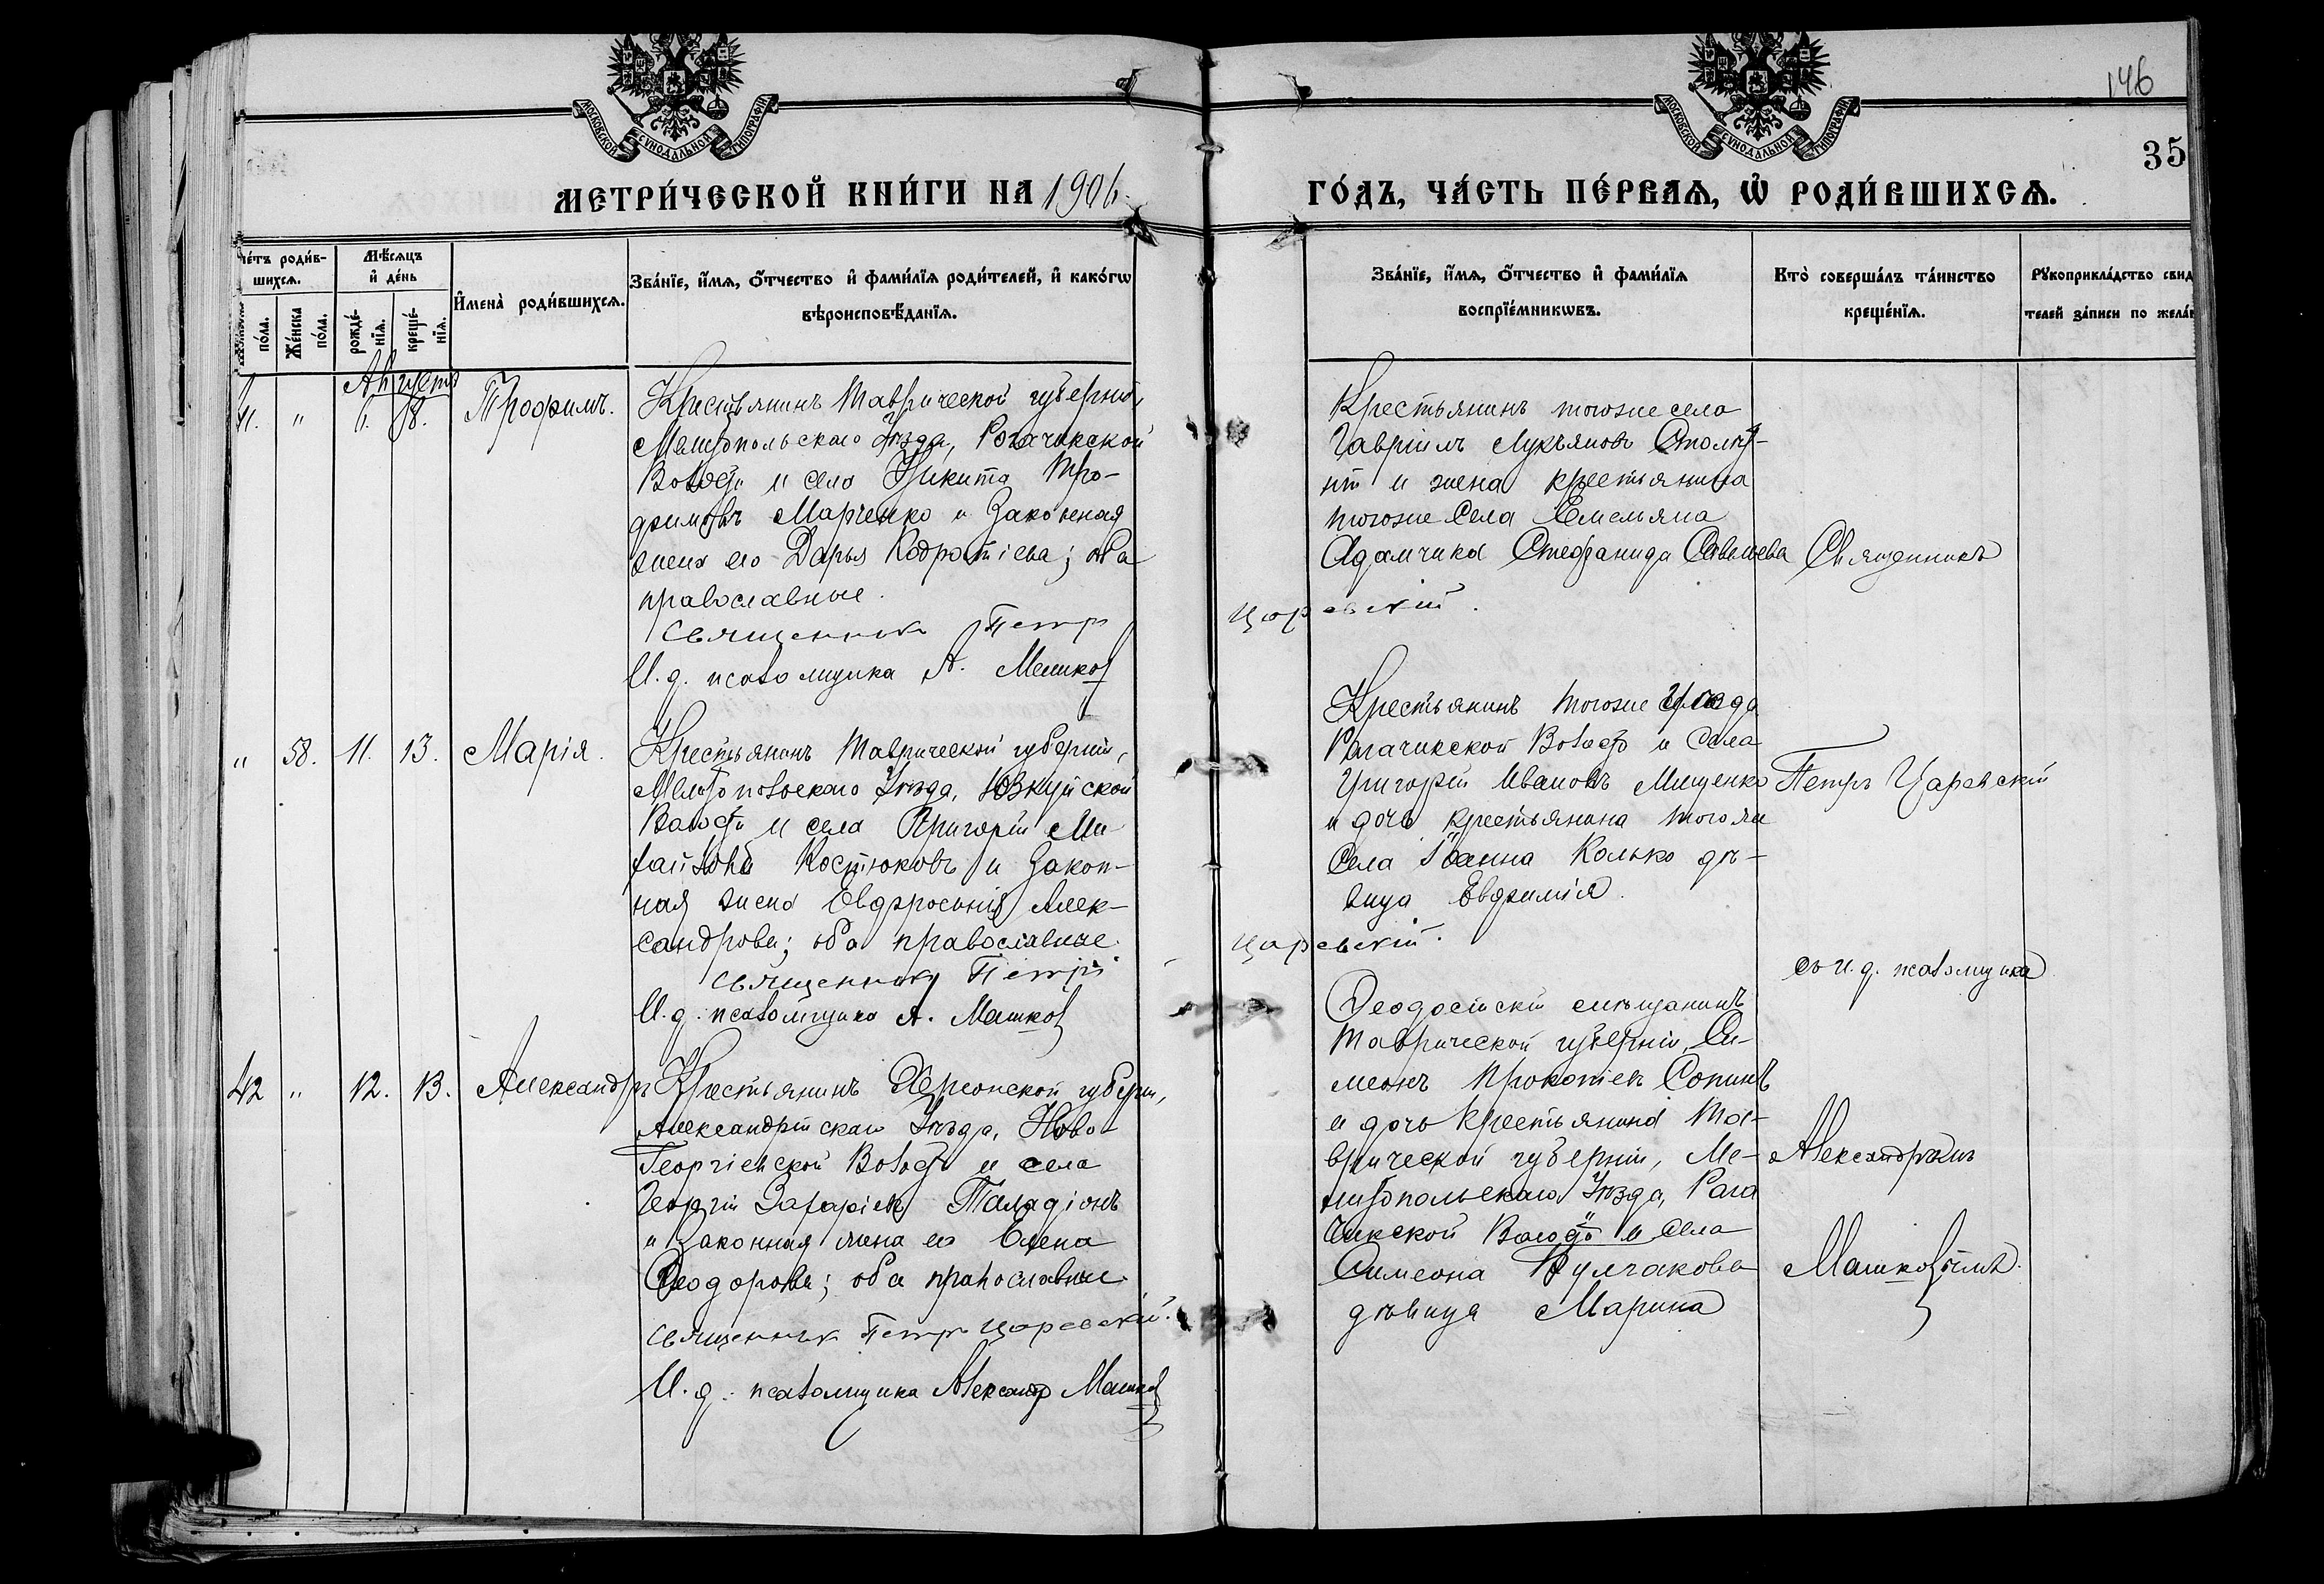 МОСКОВСКОЙ СУНОДАЛЬНОЙ ТИПОГРАФІИ
МЕТРИ́ЧЕСКОЙ КНИ́ГИ НА 1906
МОСКОВСКОЙ СУНОДАЛЬНОЙ ТИПОГРАФІИ
146
35
ГО́ДЪ, ЧА́СТЬ ПЕ́РВАѦ, Ѡ҆ РОДИ́ВШИХСѦ.
че́тъ роди́в-
шихсѧ.
Мѣ́сѧцъ
и҆ де́нь
И҆мена̀ роди́вшихсѧ.
Зва́нїе, и҆́мѧ, ѻ҆́тчество и҆ фами́лїѧ роди́телей, и҆ како́гѡ
вѣроисповѣ́данїѧ.
по́ла.
Же́нска
по́ла.
рожде́-
нїѧ.
креще́-
нїѧ.
Зва́нїе, и҆́мѧ, ѻ҆́тчество и҆ фами́лїѧ
воспрїе́мникѡвъ.
Кто̀ соверша́лъ та́инство
креще́нїѧ.
Рꙋкоприкла́дство свид
телей за́писи по жела́н
Августъ
41. " 6. 13. Трофимъ.
Крестьянинъ Таврической губерніи,
Мелитопольскаго Уѣзда, Рогачикской
Волости и села Никита Тро-
фимовъ Марченко и Законная
жена его Дарья Кодратіева; оба
православные.
Священникъ Петръ
И. д. псаломщика А. Машков
Крестьянинъ тогоже села
Гавріилъ Лукьяновъ
и жена крестьянина
тогоже Села Емельяна
Адамчика Стефанида Савельева
Царевскій.
Священникъ
" 58. 11. 13. Марія.
Крестьянинъ Таврической губерніи,
Мелитопольскаго Уѣзда, Юзкуйской
Волости и села Григорій Ми-
хайловъ Костюковъ и Закон-
ная жена Евфросинія Алек-
сандрова; оба православные.
Священникъ Петръ
И. д. псаломщика А. Машков
Крестьянинъ тогоже Уѣзда
Рогачикской Волости и Села
Григорій Ивановъ Мищенко
и дочь крестьянина тогоже
Села Іоанна Колько дѣ-
вица Евфимія.
Царевскій.
Петръ Царевскій
съ и. д. псаломщика
42 " 12. 13. Александръ
Крестьянинъ Херсонской губерн.,
Александрійскаго Уѣзда, Ново
Георгіевской Волости и села
Георгій Захаріев Паладіонъ
и Законная жена его Елена
Ѳеодорова; оба православные.
Священникъ Петръ Царевскій.
И. д. псаломщика Александр Машков
Ѳеодосійскій мѣщанинъ
Таврической губерніи, Си-
меонъ Прокопіев Сопинъ
и дочь Крестьянина Та-
врической губерніи, Ме-
литопольскаго Уѣзда, Рога
чикской Волости и села
Симеона Булгакова
дѣвица Марина
Александромъ
Машковымъ.